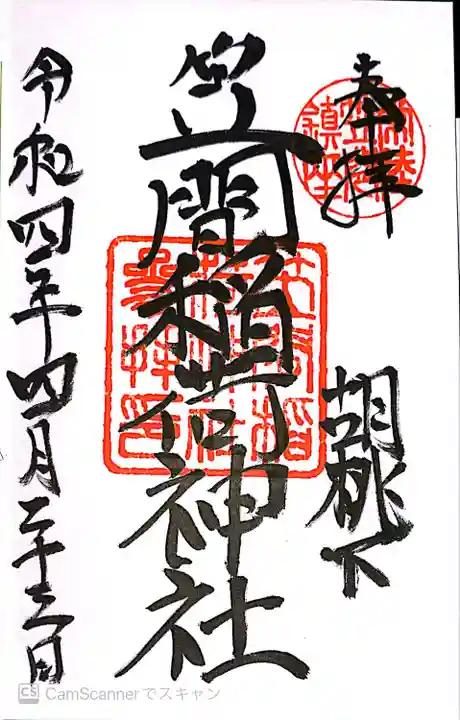 奉拝
胡桃下
笠間稲荷神社
令和四年四月二十三日
CS CamScannerでスキャン